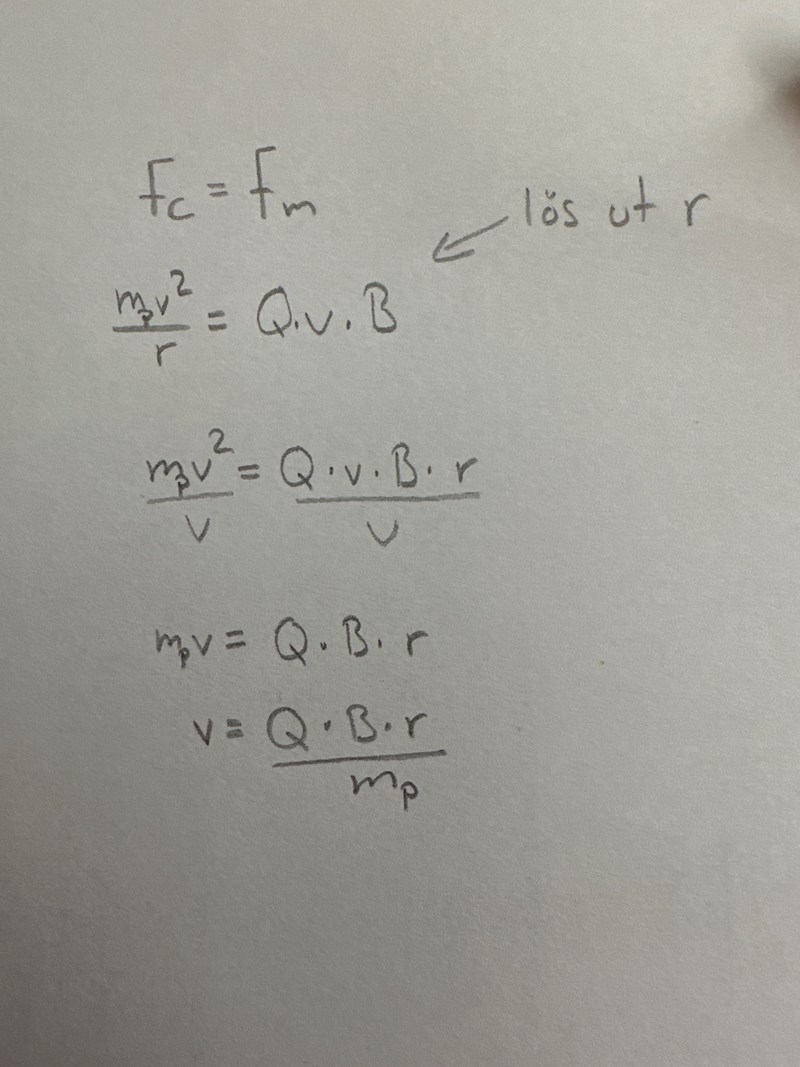 Fc = Fm
lös ut r
mₚv²/r = Q·v·B
mₚv²/v = Q·v·B·r/v
mₚv = Q·B·r
v = Q·B·r/mₚ